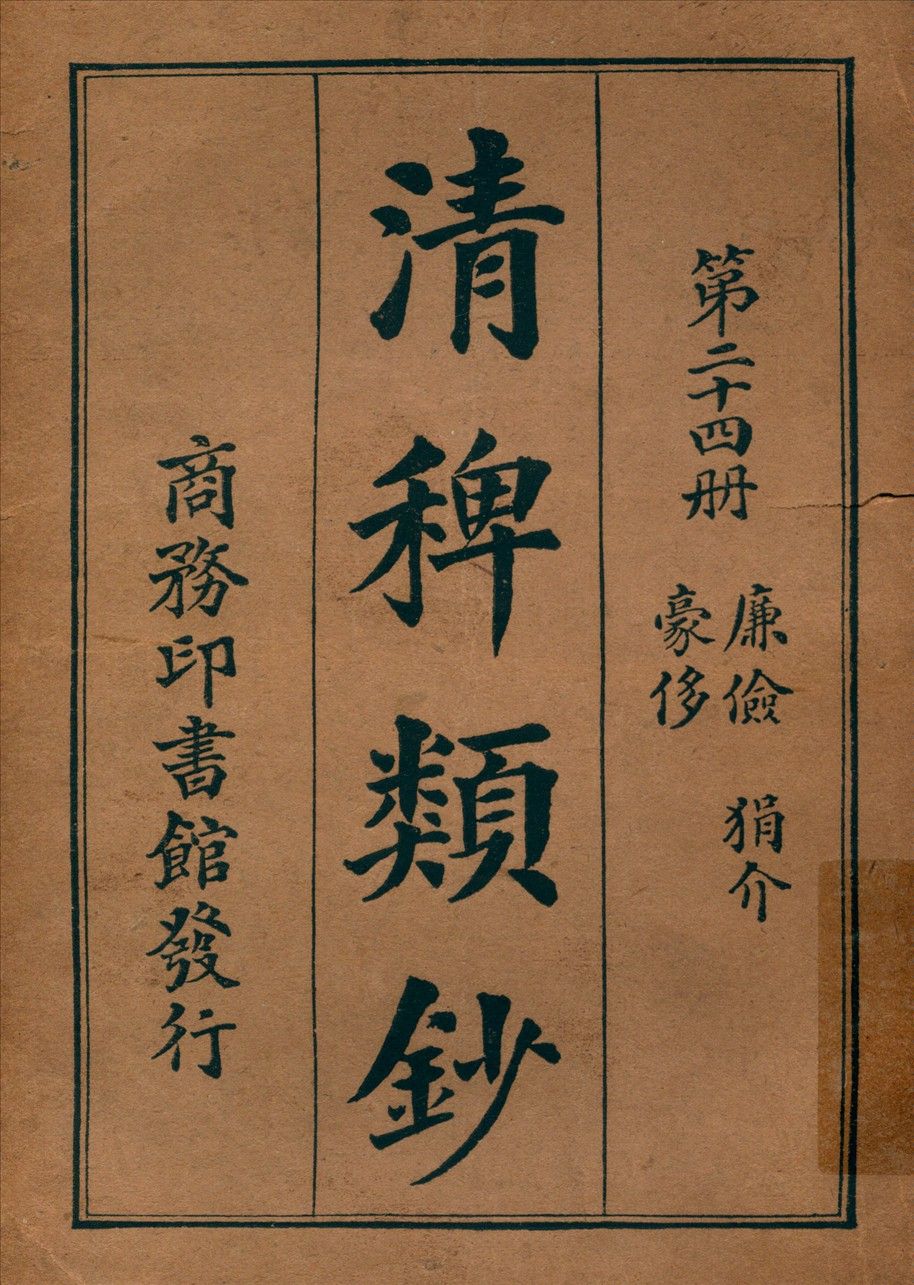 第二十四册
廉儉　狷介
豪侈
清稗類鈔
商務印書館發行